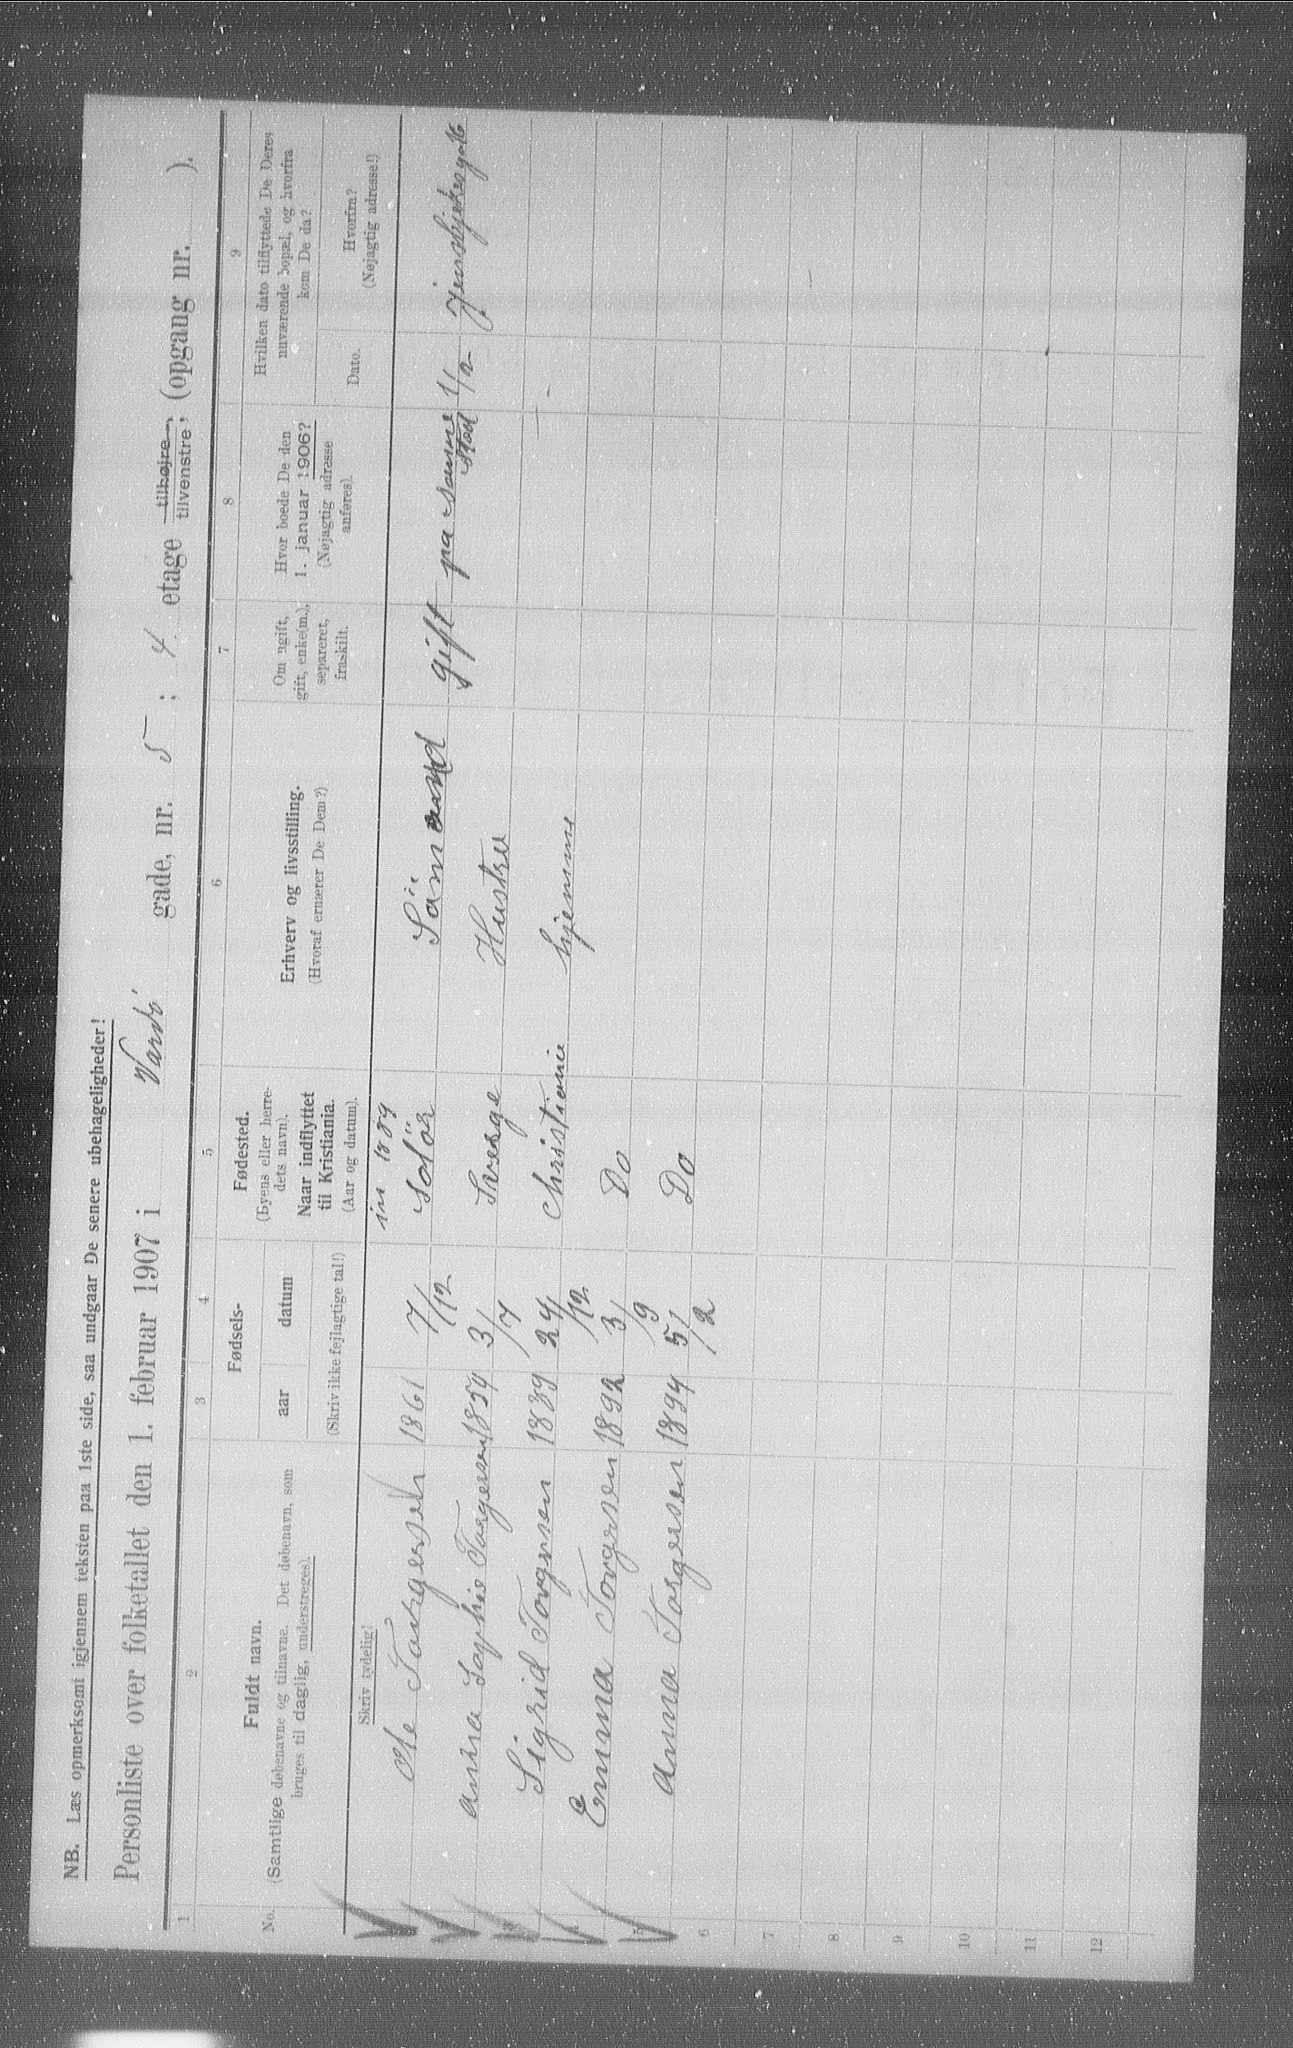 NB. Læs opmerksomt igjennem teksten paa 1ste side, saa undgaar De senere ubehageligheder!
Personliste over folketallet den 1. februar 1907 i Vardö gade, nr. 5; 4 etage tilhøjre, tilvenstre; (opgang nr. ).
1 2 3 4 5 6 7 8 9
No.
Fuldt navn.
(Samtlige døbenavne og tilnavne. Det døbenavn, som
bruges til daglig, understreges).
Skriv tydelig!
Fødsels-
aar datum
(Skriv ikke fejlagtige tal!)
Fødested.
(Byens eller herre-
dets navn).
Naar indflyttet
til Kristiania.
(Aar og datum).
Erhverv og livsstilling.
(Hvoraf ernærer De Dem?)
Om ugift,
gift, enke(m.),
separeret,
fraskilt.
Hvor boede De den
1. januar 1906?
(Nøjagtig adresse
anføres).
Hvilken dato tilflyttede De Deres
nuværende bopæl, og hvorfra
kom De da?
Dato.
Hvorfra?
(Nøjagtig adresse!)
in 1889
Ole Torgersen 1861 7/12 Solör Sömand gift pa samme stad 1/2
2 Anna Sophie Torgersen 1854 3/7 Sverge Hustru
3 Sigrid Torgersen 1889 24/12 Christiania hjemme
4 Emma Torgersen 1892 3/9 Do
5 Anna Torgersen 1894 5/2 Do
6
7
8
9
10
11
12